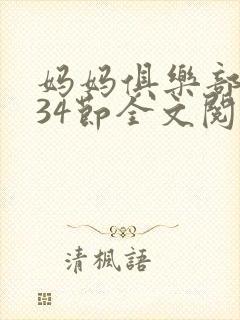 妈妈俱樂部
34節全文閱
清楓語